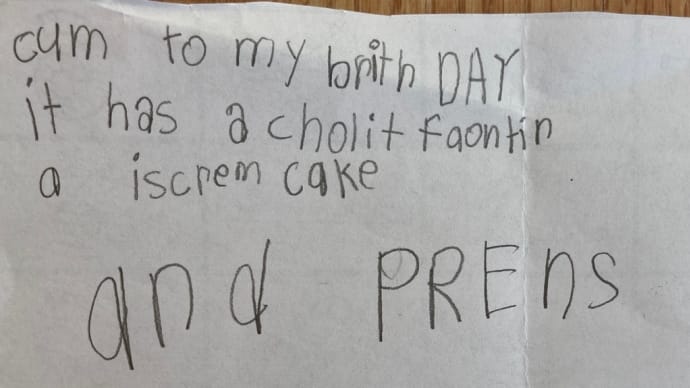 cum to my brith DAY
it has a cholit faontin
a iscrem cake
and PRENS